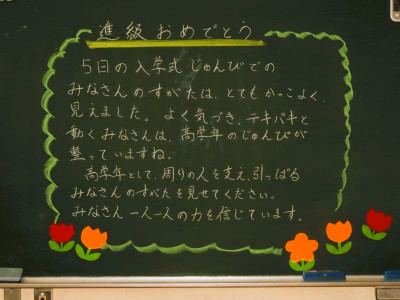 進級おめでとう
５日の入学式じゅんびでの
みなさんのすがたは、とてもかっこよく、
見えました。よく気づき、テキパキと
動くみなさんは、高学年のじゅんびが
整っていますね。
高学年として、周りの人を支え、引っぱる
みなさんのすがたを見せてください。
みなさん一人一人の力を信じています。